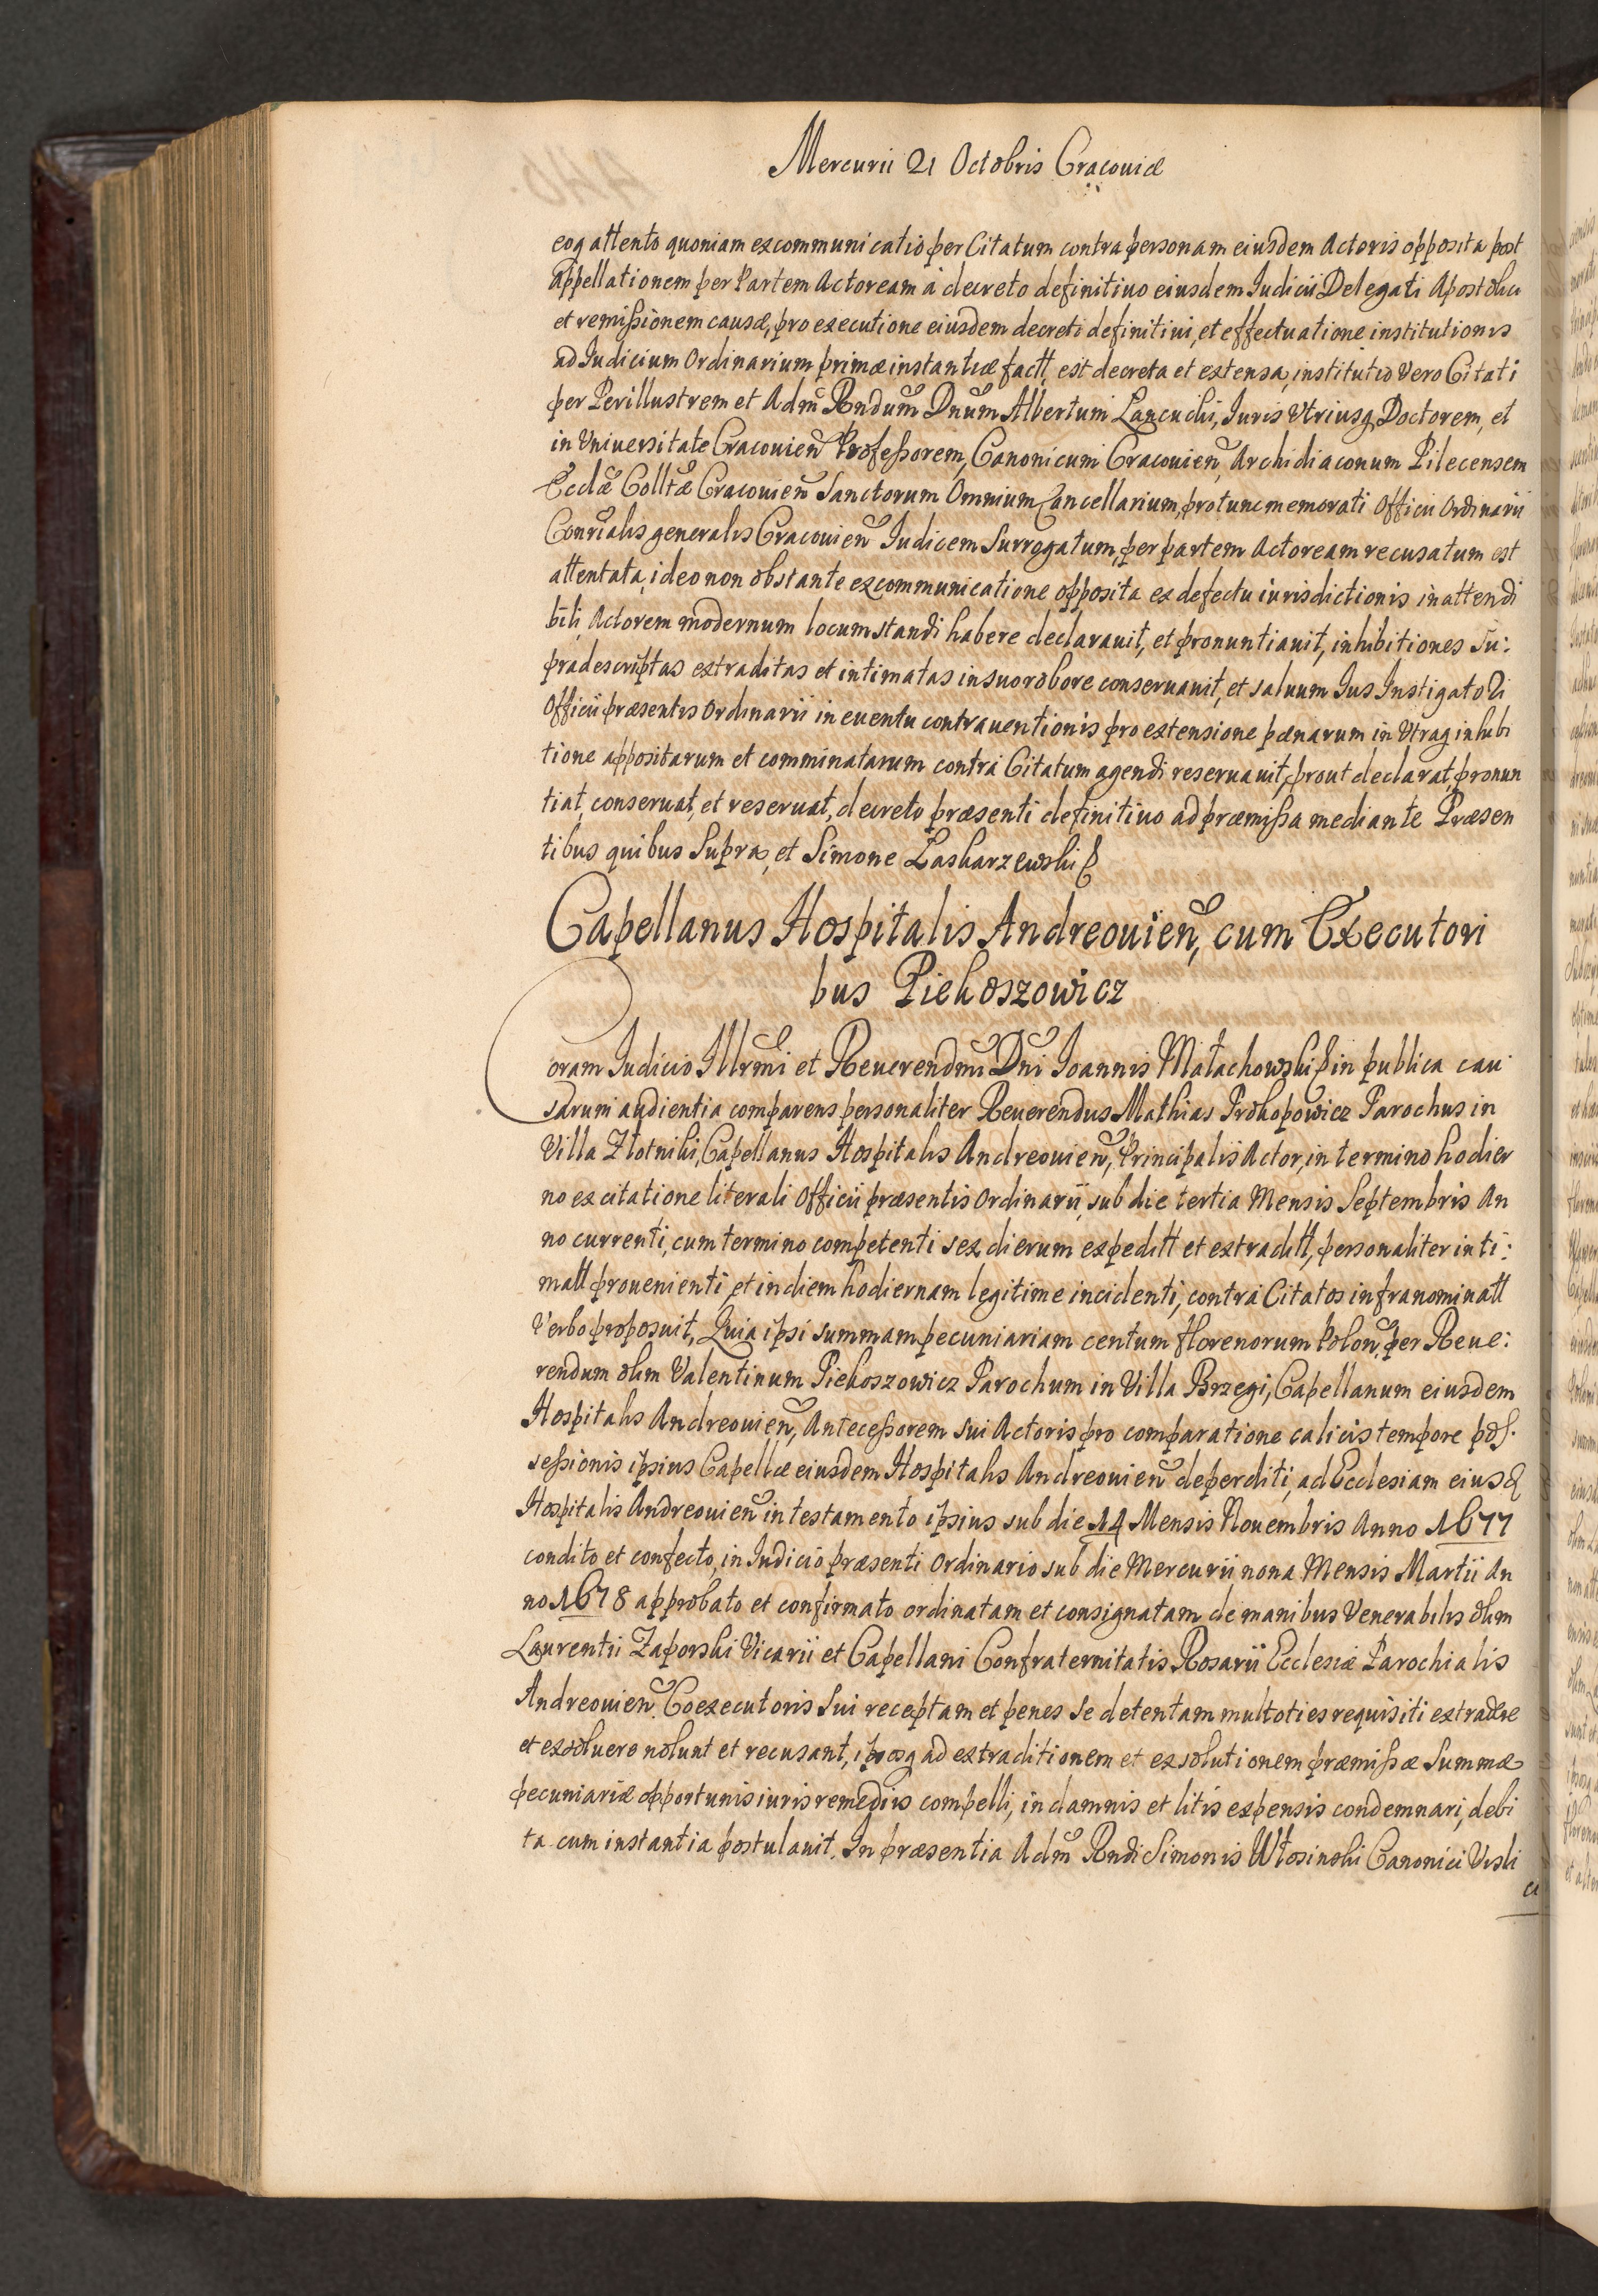 Mercurii 21 Octobris Cracouiæ
eoq attento quoniam excommunicatio per Citatum contra personam eiusdem Actoris opposita post
appellationem per Partem Actoream à decreto definitiuo eiusdem Iudicii Delegati Apostolici
et remissionem causæ, pro executione eiusdem decreti definitiui, et effectuatione institutionis
ad Iudicium Ordinarium primæ instantiæ factt, est decreta et extensa, institutio vero Citati
per Perillustrem et Adm̃ Rndum Dnum Albertum Lancucki, Iuris Vtriusq Doctorem, et
in Vniuersitate Cracouien̄ Professorem, Canonicum Cracouien̄, Archidiaconum Pilecensem
Ecclæ Colltæ Cracouien̄ Sanctorum Omnium Cancellarium, protunc memorati Officii Ordinarii
Conrialis generalis Cracouien̄ Iudicem Surrogatum, per partem Actoream recusatum est
attentata, ideo non obstante excommunicatione opposita ex defectu iurisdictionis inattendi
bili, Actorem modernum locum standi habere declarauit, et pronuntiauit, inhibitiones Su:
pradescriptas extraditas et intimatas in suo robore conseruauit, et saluum Ius Instigatori
Officii præsentis Ordinarii in euentu contrauentionis pro extensione pænarum in Vtraq inhibi
tione appositarum et comminatarum contra Citatum agendi reseruauit, prout declarat, pronun
tiat, conseruat, et reseruat, decreto præsenti definitiuo ad præmissa mediante Præsen
tibus quibus Supra, et Simone Laskarzewski
Capellanus Hospitalis Andreouien̄, cum Executori
bus Piekoszowicz
Coram Iudicio Illrmi et Reuerendmi Dni Ioannis Małachowski in publica cau
sarum audientia comparens personaliter Reuerendus Mathias Prokopowicz Parochus in
Villa Złotniki, Capellanus Hospitalis Andreouien̄, Principalis Actor, in termino hodier
no ex citatione literali Officii præsentis Ordinarii, sub die tertia Mensis Septembris An
no currenti, cum termino competenti sex dierum expeditt et extraditt, personaliter inti:
matt prouenienti, et in diem hodiernam legitime incidenti, contra Citatos infranominatt
Verbo proposuit, Quia ipsi summam pecuniariam centum florenorum Polon̄ per Reue:
rendum olim Valentinum Piekoszowicz Parochum in Villa Brzegi, Capellanum eiusdem
Hospitalis Andreouien̄, Antecessorem sui Actoris pro comparatione calicis tempore pos.
sessionis ipsius Capellæ eiusdem Hospitalis Andreouien̄ deperditi, ad Ecclesiam eiusd
Hospitalis Andreouien̄ in testamento ipsius sub die 14 Mensis Nouembris Anno 1677
condito et confecto, in Iudicio præsenti Ordinario sub die Mercurii nona Mensis Martii An
no 1678 approbato et confirmato ordinatam et consignatam de manibus Venerabilis olim
Laurentii Zaporski Vicarii et Capellani Confraternitatis Rosarii Ecclesiæ Parochialis
Andreouien̄ Coexecutoris Sui receptam et penes se detentam multoties requisiti extradere
et exoluere nolunt et recusant, ipsosq ad extraditionem et exolutionem præmissæ Summæ
pecuniariæ opportunis iuris remediis compelli, in damnis et litis expensis condemnari, debi
ta cum instantia postulauit. In præsentia Adm̃ Rndi Simonis Włosinski Canonici Visli